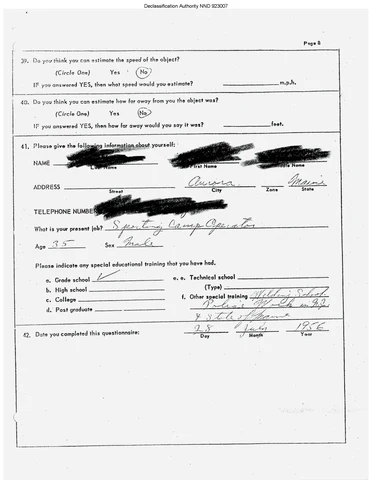 Declassification Authority NND 923007
Page 8
39. Do you think you can estimate the speed of the object?
(Circle One) Yes No
IF you answered YES, then what speed would you estimate? m.p.h.
40. Do you think you can estimate how far away from you the object was?
(Circle One) Yes No
IF you answered YES, then how far away would you say it was? feet.
41. Please give the following information about yourself:
NAME
Last Name First Name Middle Name
ADDRESS Aurora Maine
Street City Zone State
TELEPHONE NUMBER
What is your present job? Sporting Camp Operator
Age 35 Sex Male
Please indicate any special educational training that you have had.
a. Grade school ✓ e. a. Technical school
b. High school (Type)
c. College f. Other special training Welding School
d. Post graduate Police Work in
& State of Maine
42. Date you completed this questionnaire: 28 July 1956
Day Month Year